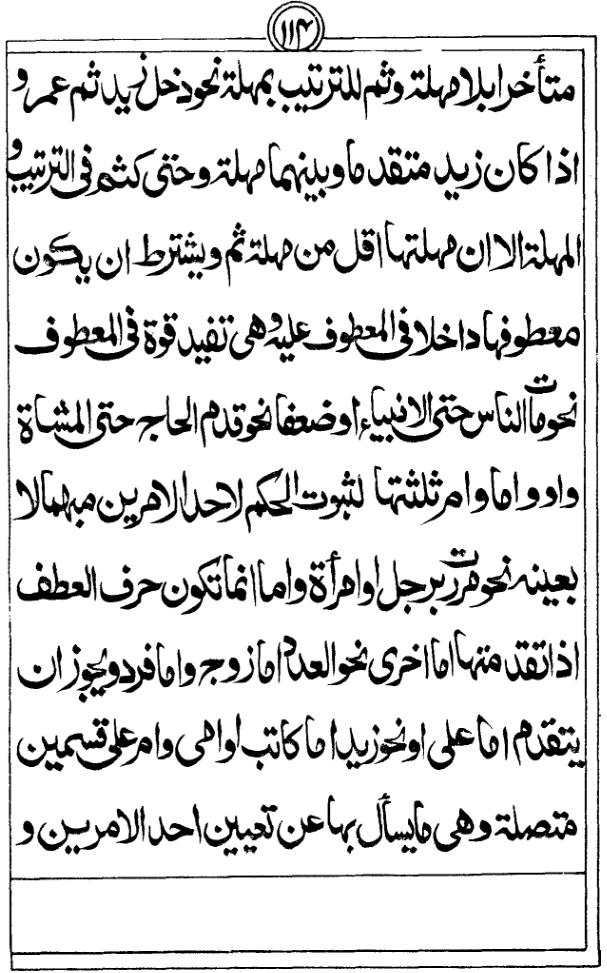 ١١٤
متأخرا بلا مهلة وثم للترتيب بمهلة نحو دخل زيد ثم عمرو
اذا كان زيد متقدما وبينهما مهلة وحتى كثم فى الترتيب و
المهلة الا ان مهلتها اقل من مهلة ثم ويشترط ان يكون
معطوفها داخلا فى المعطوف عليه وهى تفيد قوة فى المعطوف
نحو مات الناس حتى الانبياء او ضعفا نحو قدم الحاج حتى المشاة
واو واما وام ثلثتها لثبوت الحكم لاحد الامرين مبهما لا
بعينه نحو مررت برجل او امرأة واما انما تكون حرف العطف
اذا تقدمتها اما اخرى نحو العدد اما زوج واما فرد ويجوز ان
يتقدم اما على او نحو زيد اما كاتب او امى وام على قسمين
متصلة وهى ما يسأل بها عن تعيين احد الامرين و